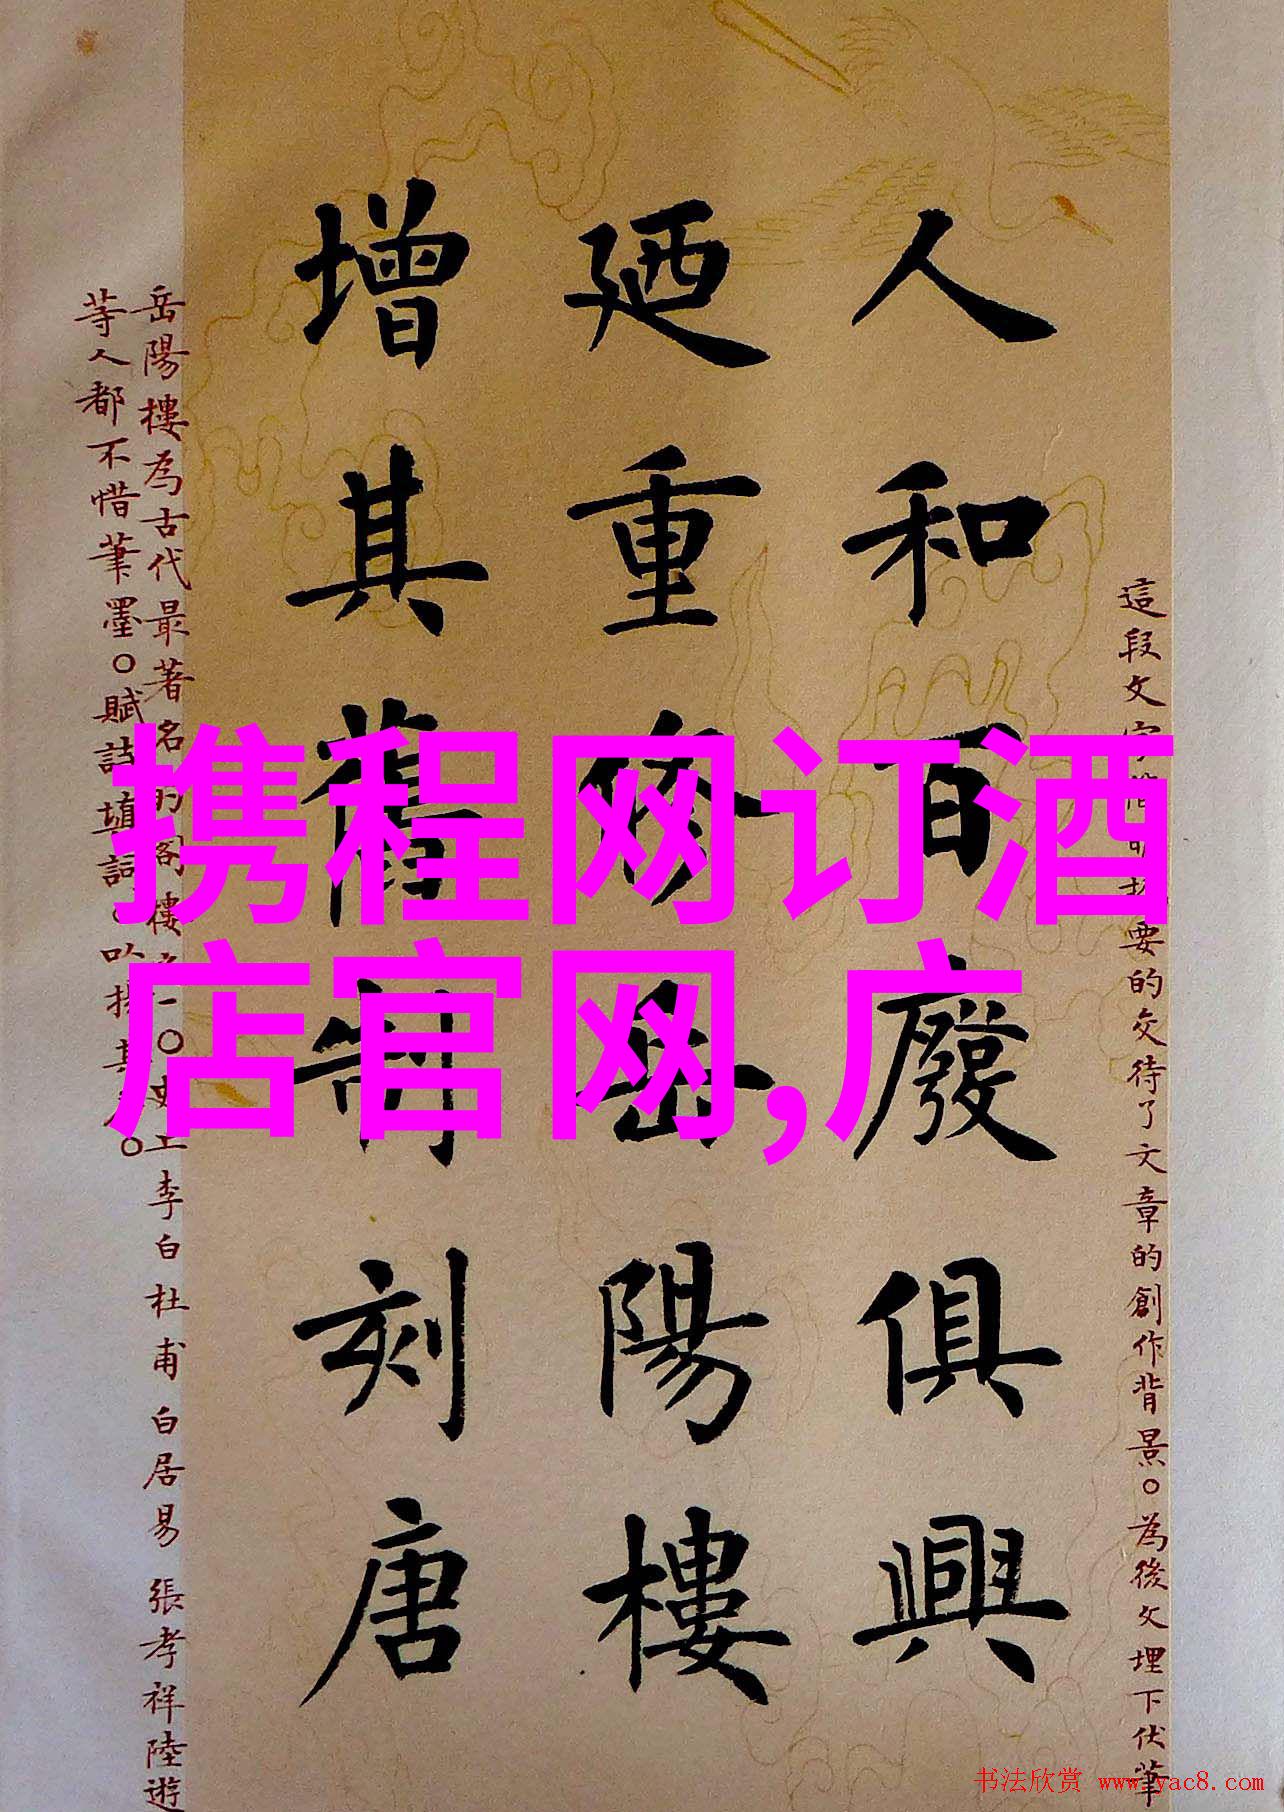 這段文字簡明扼要的交待了文章的創作背景。為後文埋下伏筆
人和百廢俱興
廼重修岳陽樓
增其舊制刻唐
岳陽樓為古代最著名的閣樓之一。史上李白杜甫白居易張孝祥陸遊
等人都不惜筆墨。賦詩填詞。吟揚其。
携程网订酒
店官网,广
书法欣赏 www.yac8.com